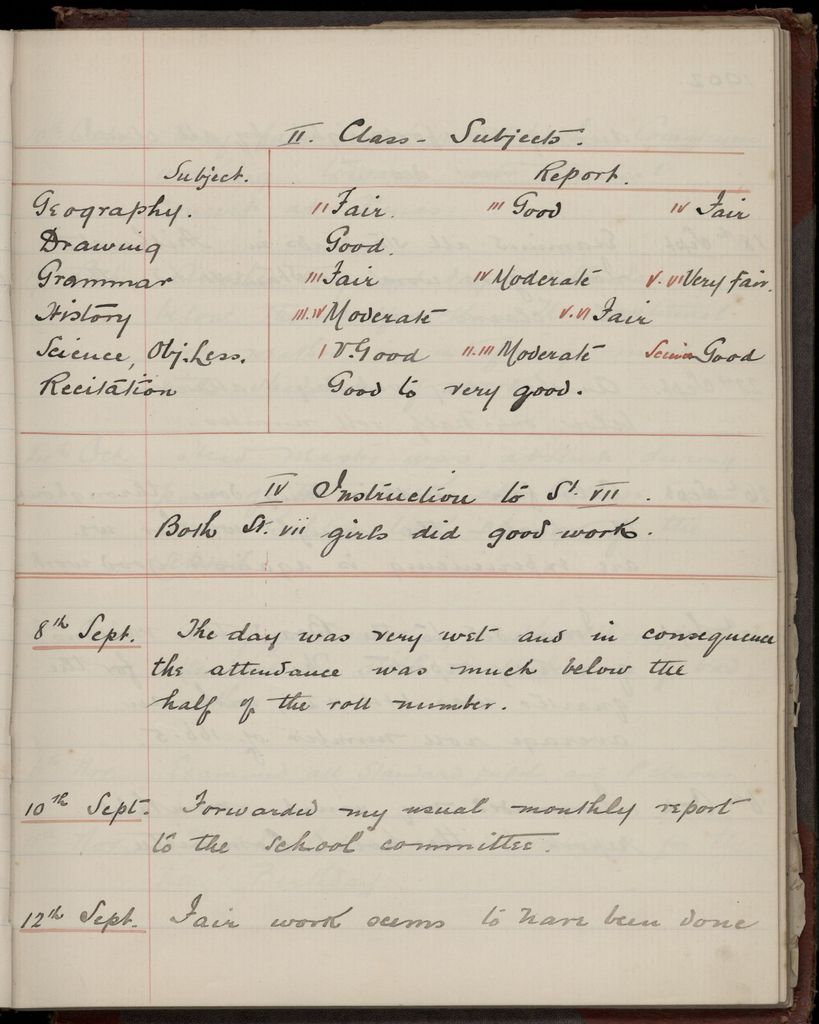 II. Class-Subjects.
Subject. Report.
Geography. II Fair. III Good IV Fair
Drawing Good.
Grammar III Fair IV Moderate V. VI Very fair.
History III. IV Moderate V. VI Fair
Science, Obj. Less. I V. Good II. III Moderate Science Good
Recitation Good to very good.
IV Instruction to St. VII.
Both St. vii girls did good work.
8th Sept. The day was very wet and in consequence
the attendance was much below the
half of the roll number.
10th Sept. Forwarded my usual monthly report
to the school committee.
12th Sept. Fair work seems to have been done